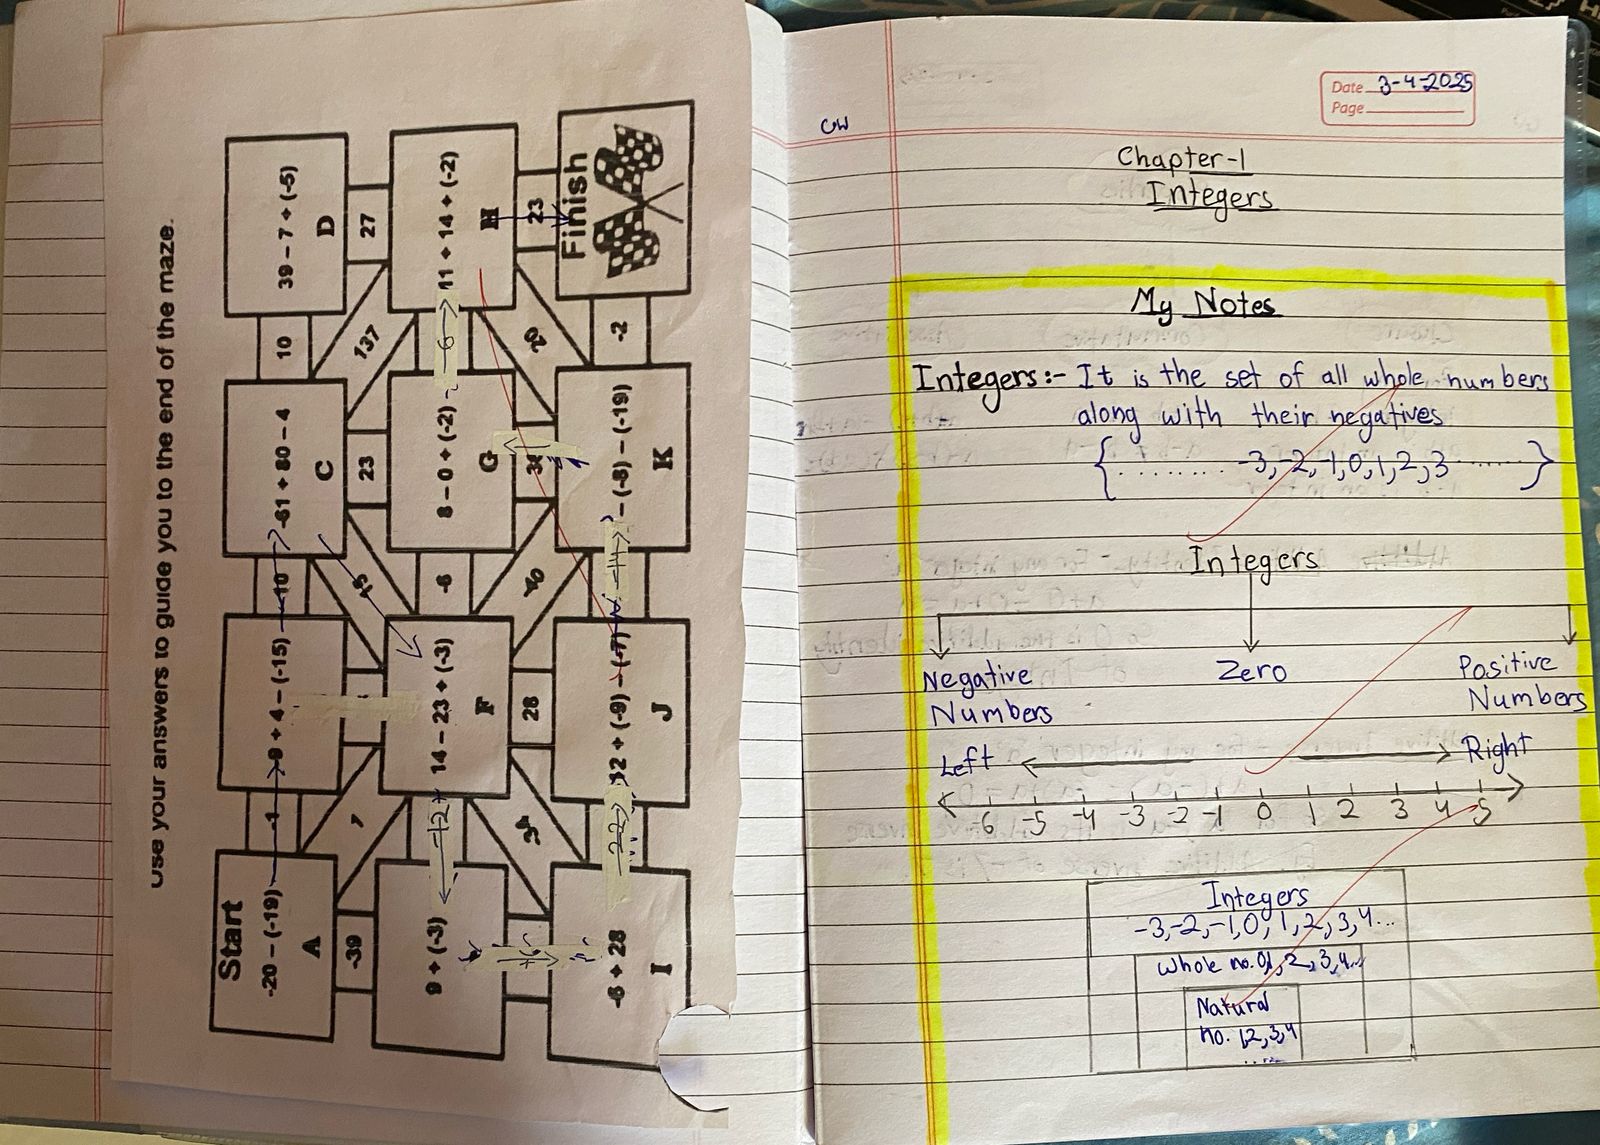 Use your answers to guide you to the end of the maze.
Start
-20 – (-19)
A
-1
-9 + 4 – (-15)
10
-61 + 80 – 4
C
10
39 – 7 + (-5)
D
-39
7
15
23
137
27
9 + (-3)
-12
14 – 23 + (-3)
F
-6
8 – 0 + (-2)
G
6
11 + 14 + (-2)
H
28
-20
23
-6 + 28
I
22
12 + (-9) – (-7)
J
– (-8) – (-19)
K
-2
Finish
CW
Date 3-4-2025
Page
Chapter-1
Integers
My Notes
Integers:- It is the set of all whole numbers
along with their negatives
{ ........ -3,-2,-1,0,1,2,3 ...... }
Integers
Negative Numbers
Zero
Positive Numbers
Left
Right
-6 -5 -4 -3 -2 -1 0 1 2 3 4 5
Integers
-3,-2,-1,0,1,2,3,4...
Whole no. 0,1,2,3,4..
Natural
no. 1,2,3,4
.....